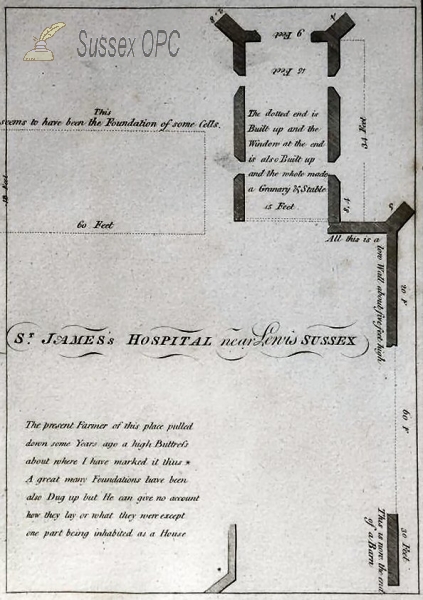 Sussex OPC
9 Feet
15 Feet
This
seems to have been the Foundation of some Cells.
The dotted end is
Built up and the
Window at the end
is also Built up
and the whole made
a Granary & Stable
15 Feet
34 Feet
60 Feet
All this is a
low Wall about five feet high
20 F
ST. JAMES's HOSPITAL near Lewis SUSSEX
60 F
The present Farmer of this place pulled
down some Years ago a high Buttress
about where I have marked it thus *
A great many Foundations have been
also Dug up but He can give no account
how they lay or what they were except
one part being inhabited as a House
This is now the end
of a Barn
30 Feet
*